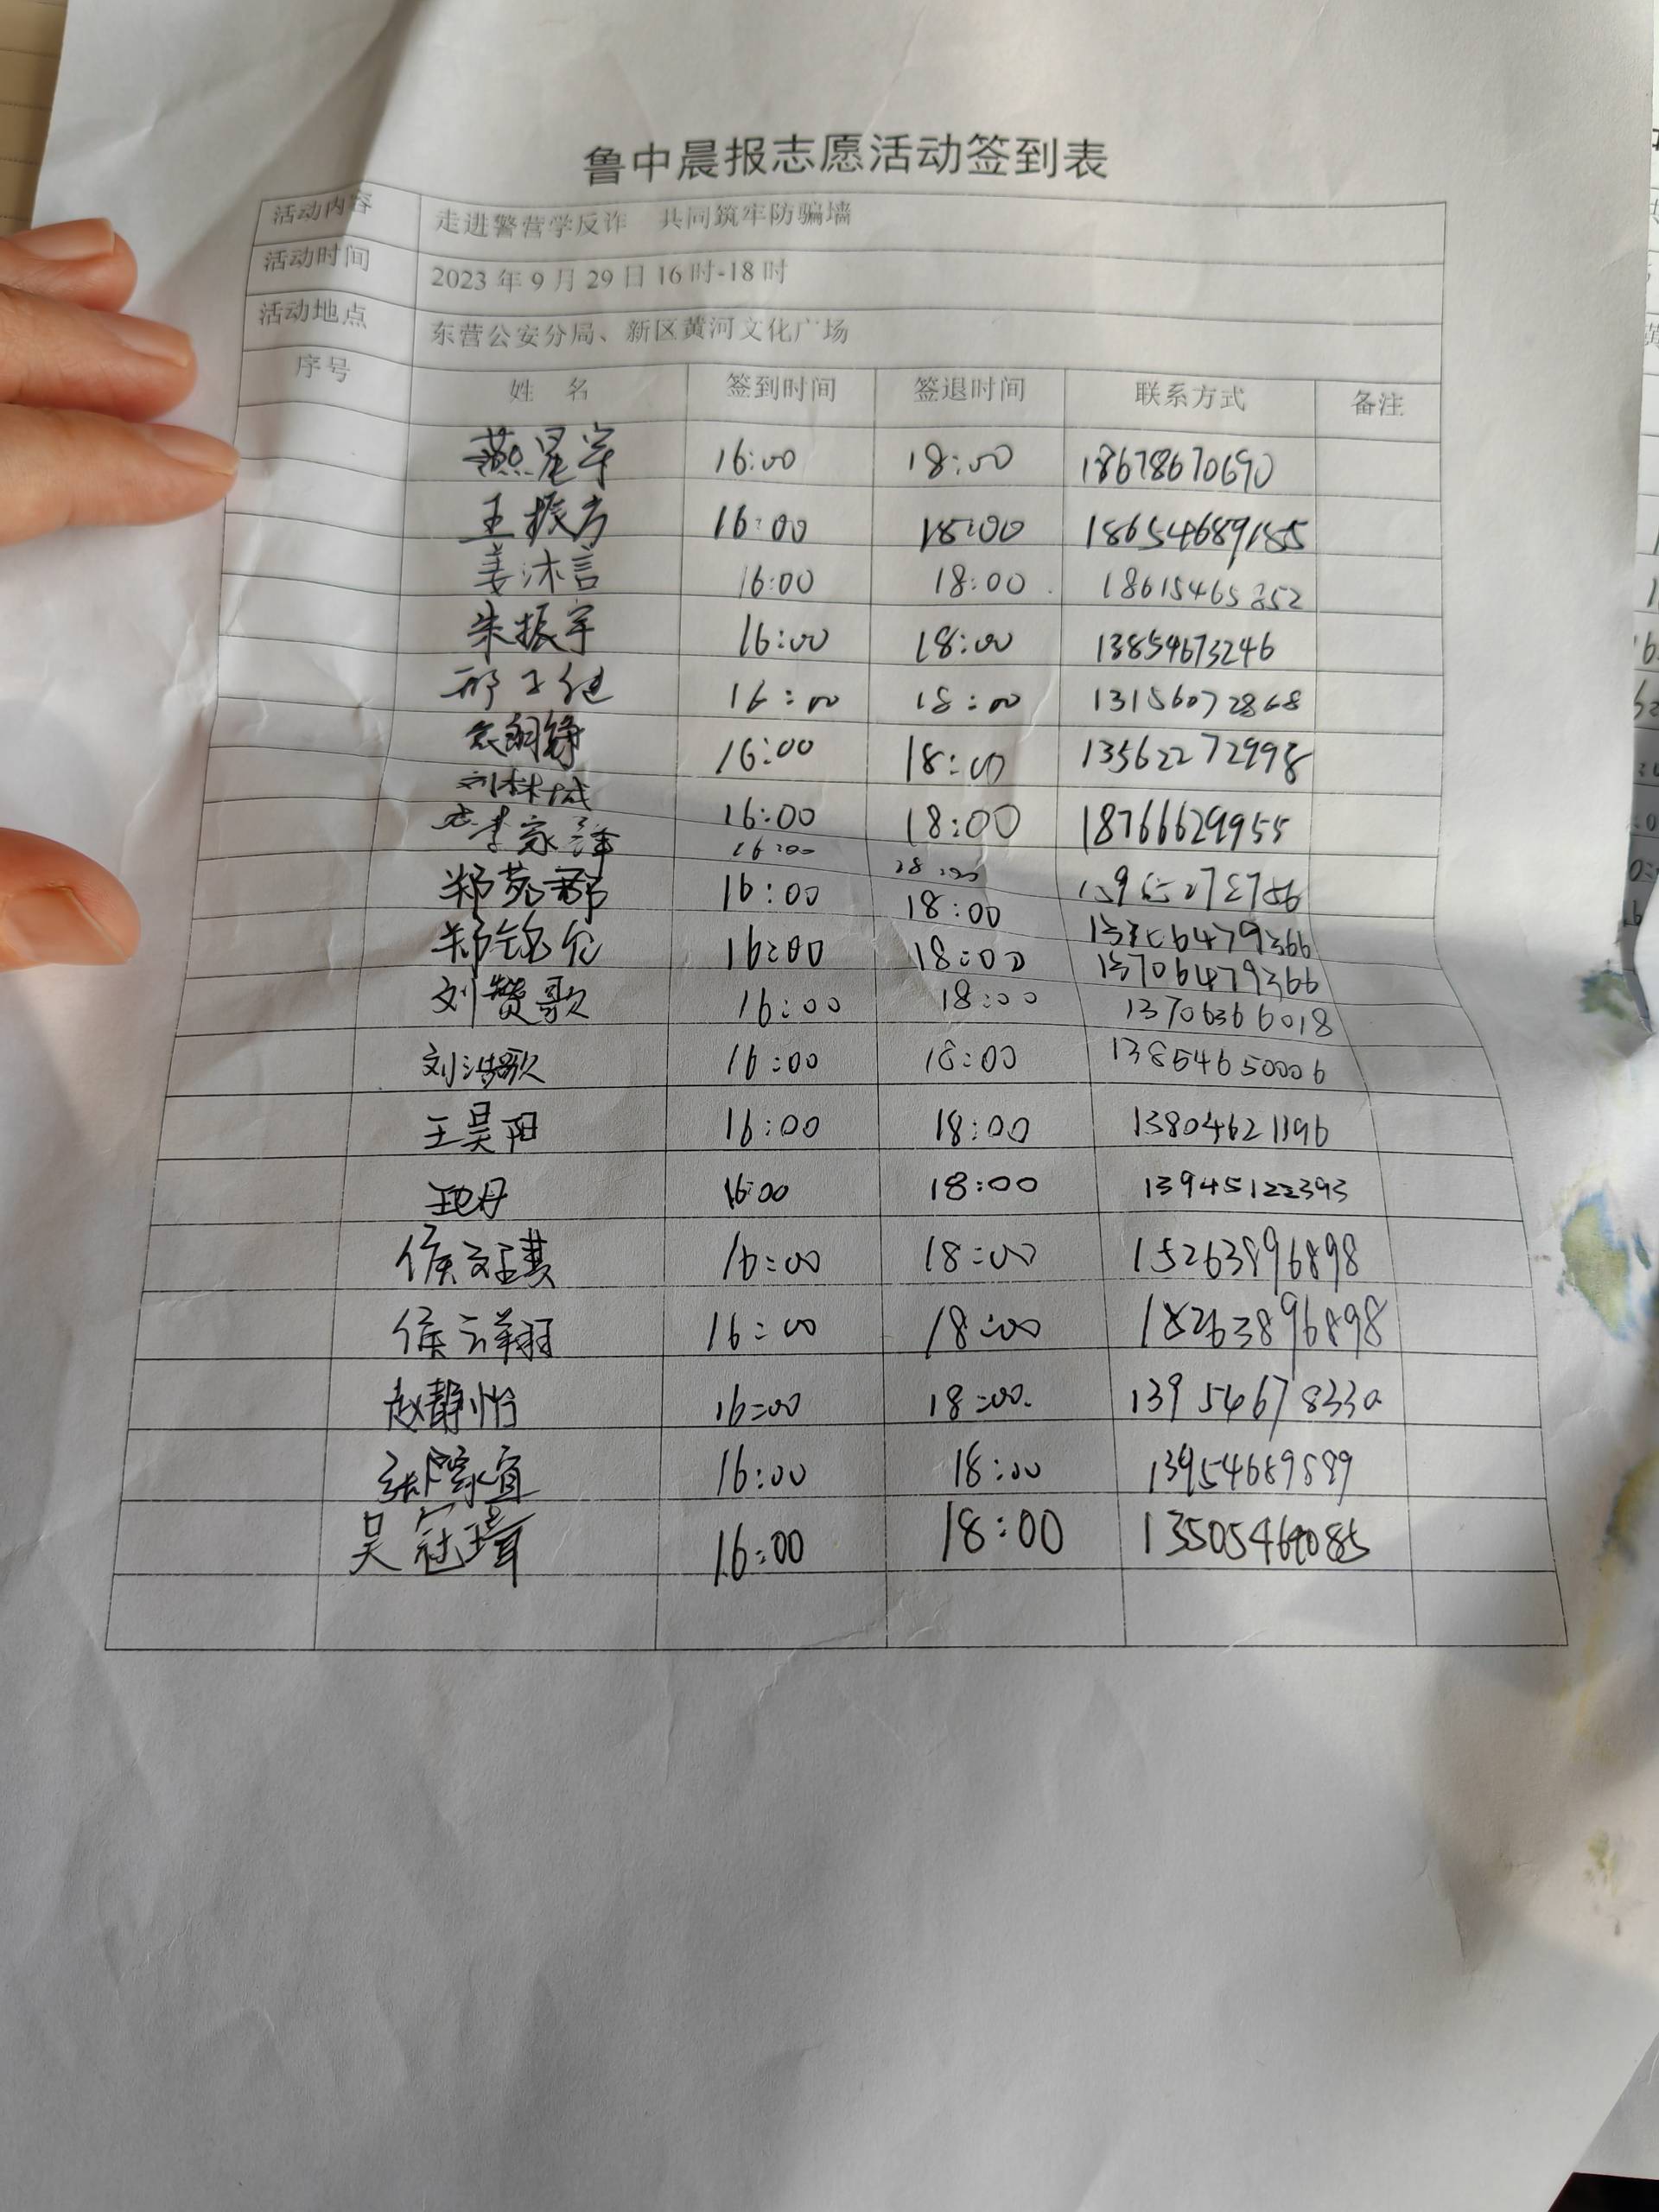 鲁中晨报志愿活动签到表
活动内容 走进警营学反诈 共同筑牢防骗墙
活动时间 2023年9月29日16时-18时
活动地点 东营公安分局、新区黄河文化广场
序号 姓 名 签到时间 签退时间 联系方式 备注
燕星宇 16:00 18:00 18678670690
王振方 16:00 18:00 18654689185
姜沐言 16:00 18:00 18615465352
朱振宇 16:00 18:00 13854673246
邢子健 16:00 18:00 13156072868
16:00 18:00 13562272998
刘林城 16:00 18:00 18766629955
李家泽 16:00 18:00
郑茗郡 16:00 18:00 13706479366
郑铭允 16:00 18:00 13706479366
刘赞歌 16:00 18:00 13706366018
刘浩歌 16:00 18:00 13854650006
王昊阳 16:00 18:00 13804621196
16:00 18:00 13945122393
侯云琪 16:00 18:00 15263896898
侯云翔 16:00 18:00 18263896898
赵静怡 16:00 18:00 13954678330
张家宜 16:00 18:00 13954689589
吴冠璋 16:00 18:00